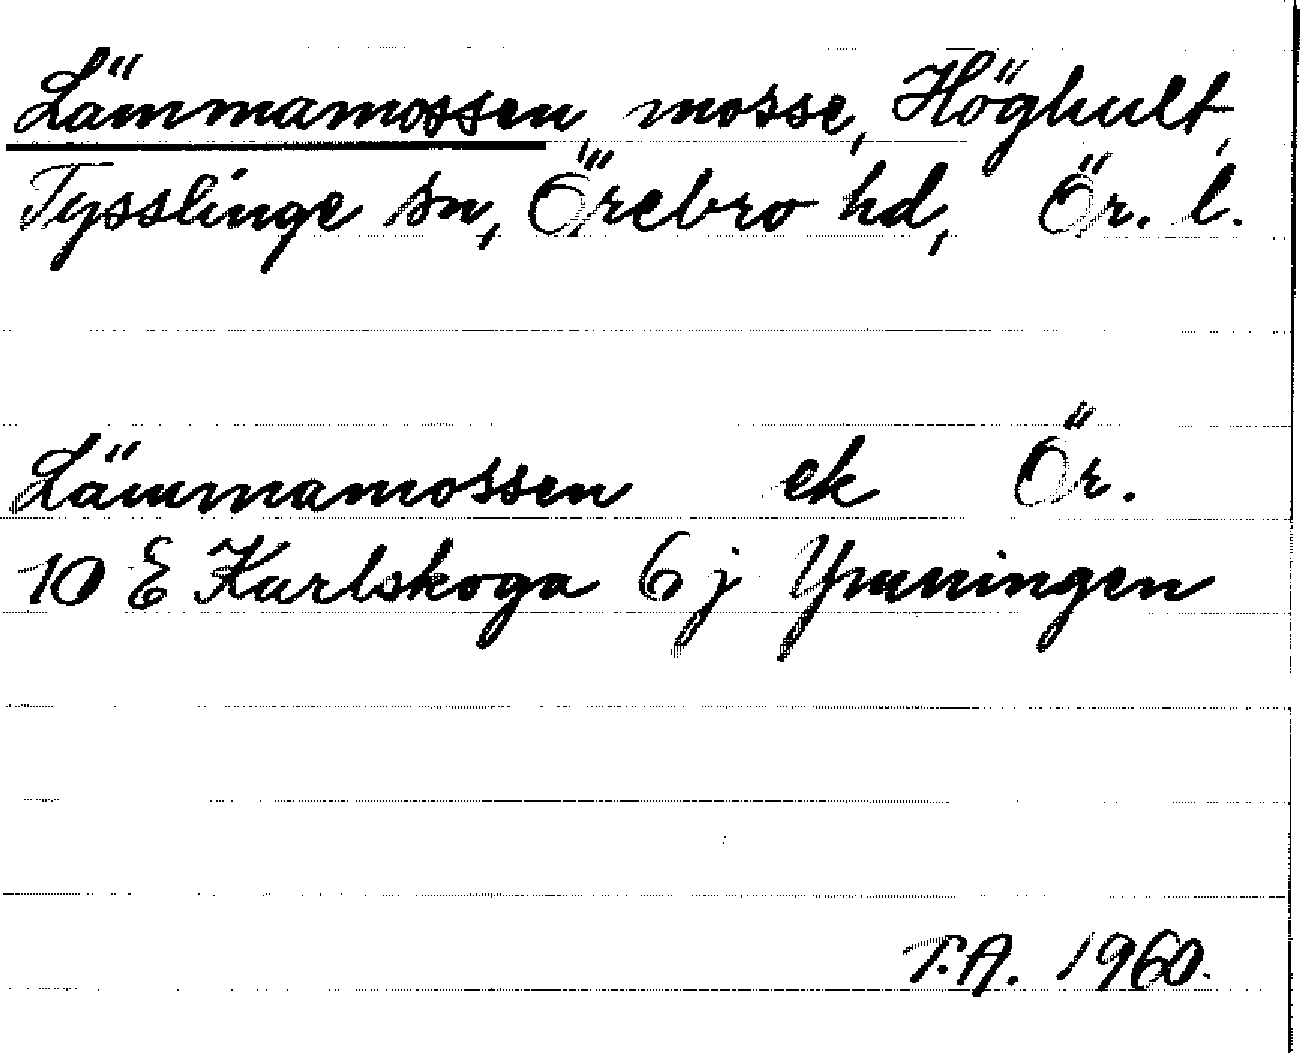 Lämmamossen, mosse, Höghult,
Tysslinge sn, Örebro hd, Ör. l.
Lämmamossen ek Ör.
10 E Karlskoga 6 j Ymningen
T.A. 1960.